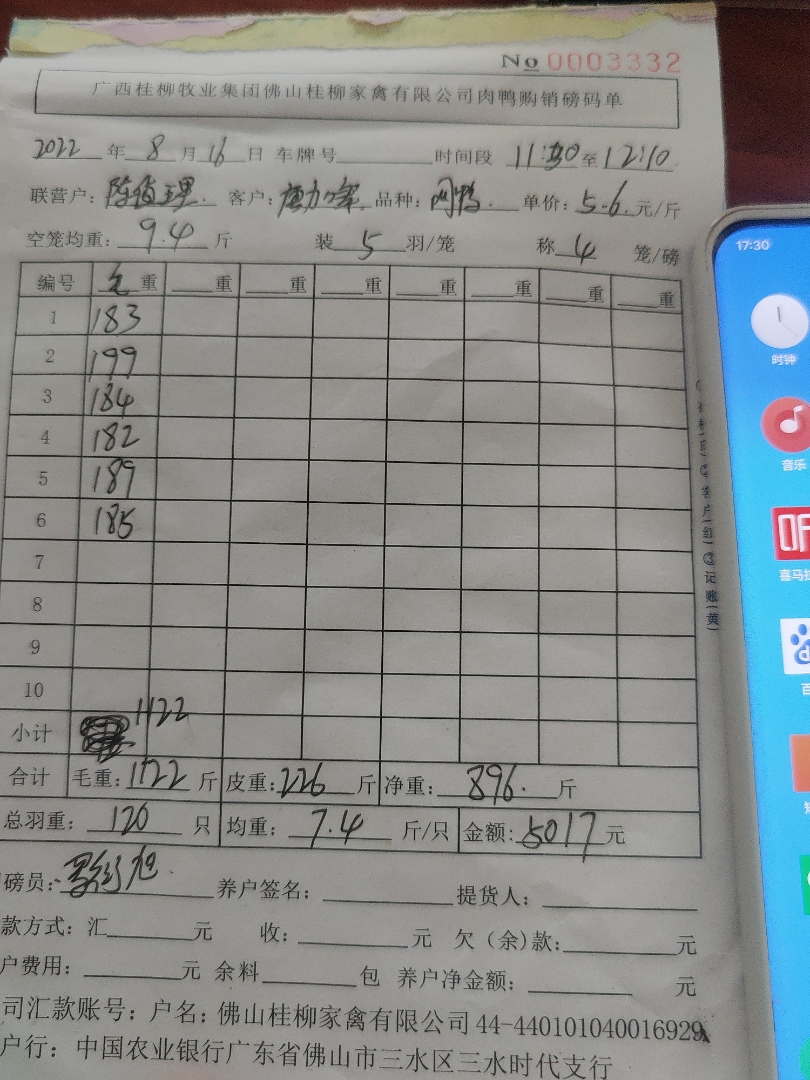 No 0003332
广西桂柳牧业集团佛山桂柳家禽有限公司肉鸭购销磅码单
2022 年 8 月 16 日 车牌号 时间段 11:30 至 12:10
联营户: 陈 客户: 品种: 肉鸭. 单价: 5.6 元/斤
空笼均重: 9.4 斤 装 5 羽/笼 称 4 笼/磅
编号 毛重 重 重 重 重 重 重 重
1 183
2 199
3 184
4 182
5 189
6 185
7
8
9
10
小计 1122
合计 毛重: 1122 斤 皮重: 226 斤 净重: 896. 斤
总羽重: 120 只 均重: 7.4 斤/只 金额: 5017 元
磅员: 旭 养户签名: 提货人:
款方式: 汇 元 收: 元 欠(余)款: 元
户费用: 元 余料 包 养户净金额: 元
司汇款账号: 户名: 佛山桂柳家禽有限公司 44-440101040016929
户行: 中国农业银行广东省佛山市三水区三水时代支行
客户(红) ③记账(黄)
17:30
时钟
音乐
喜马拉
百